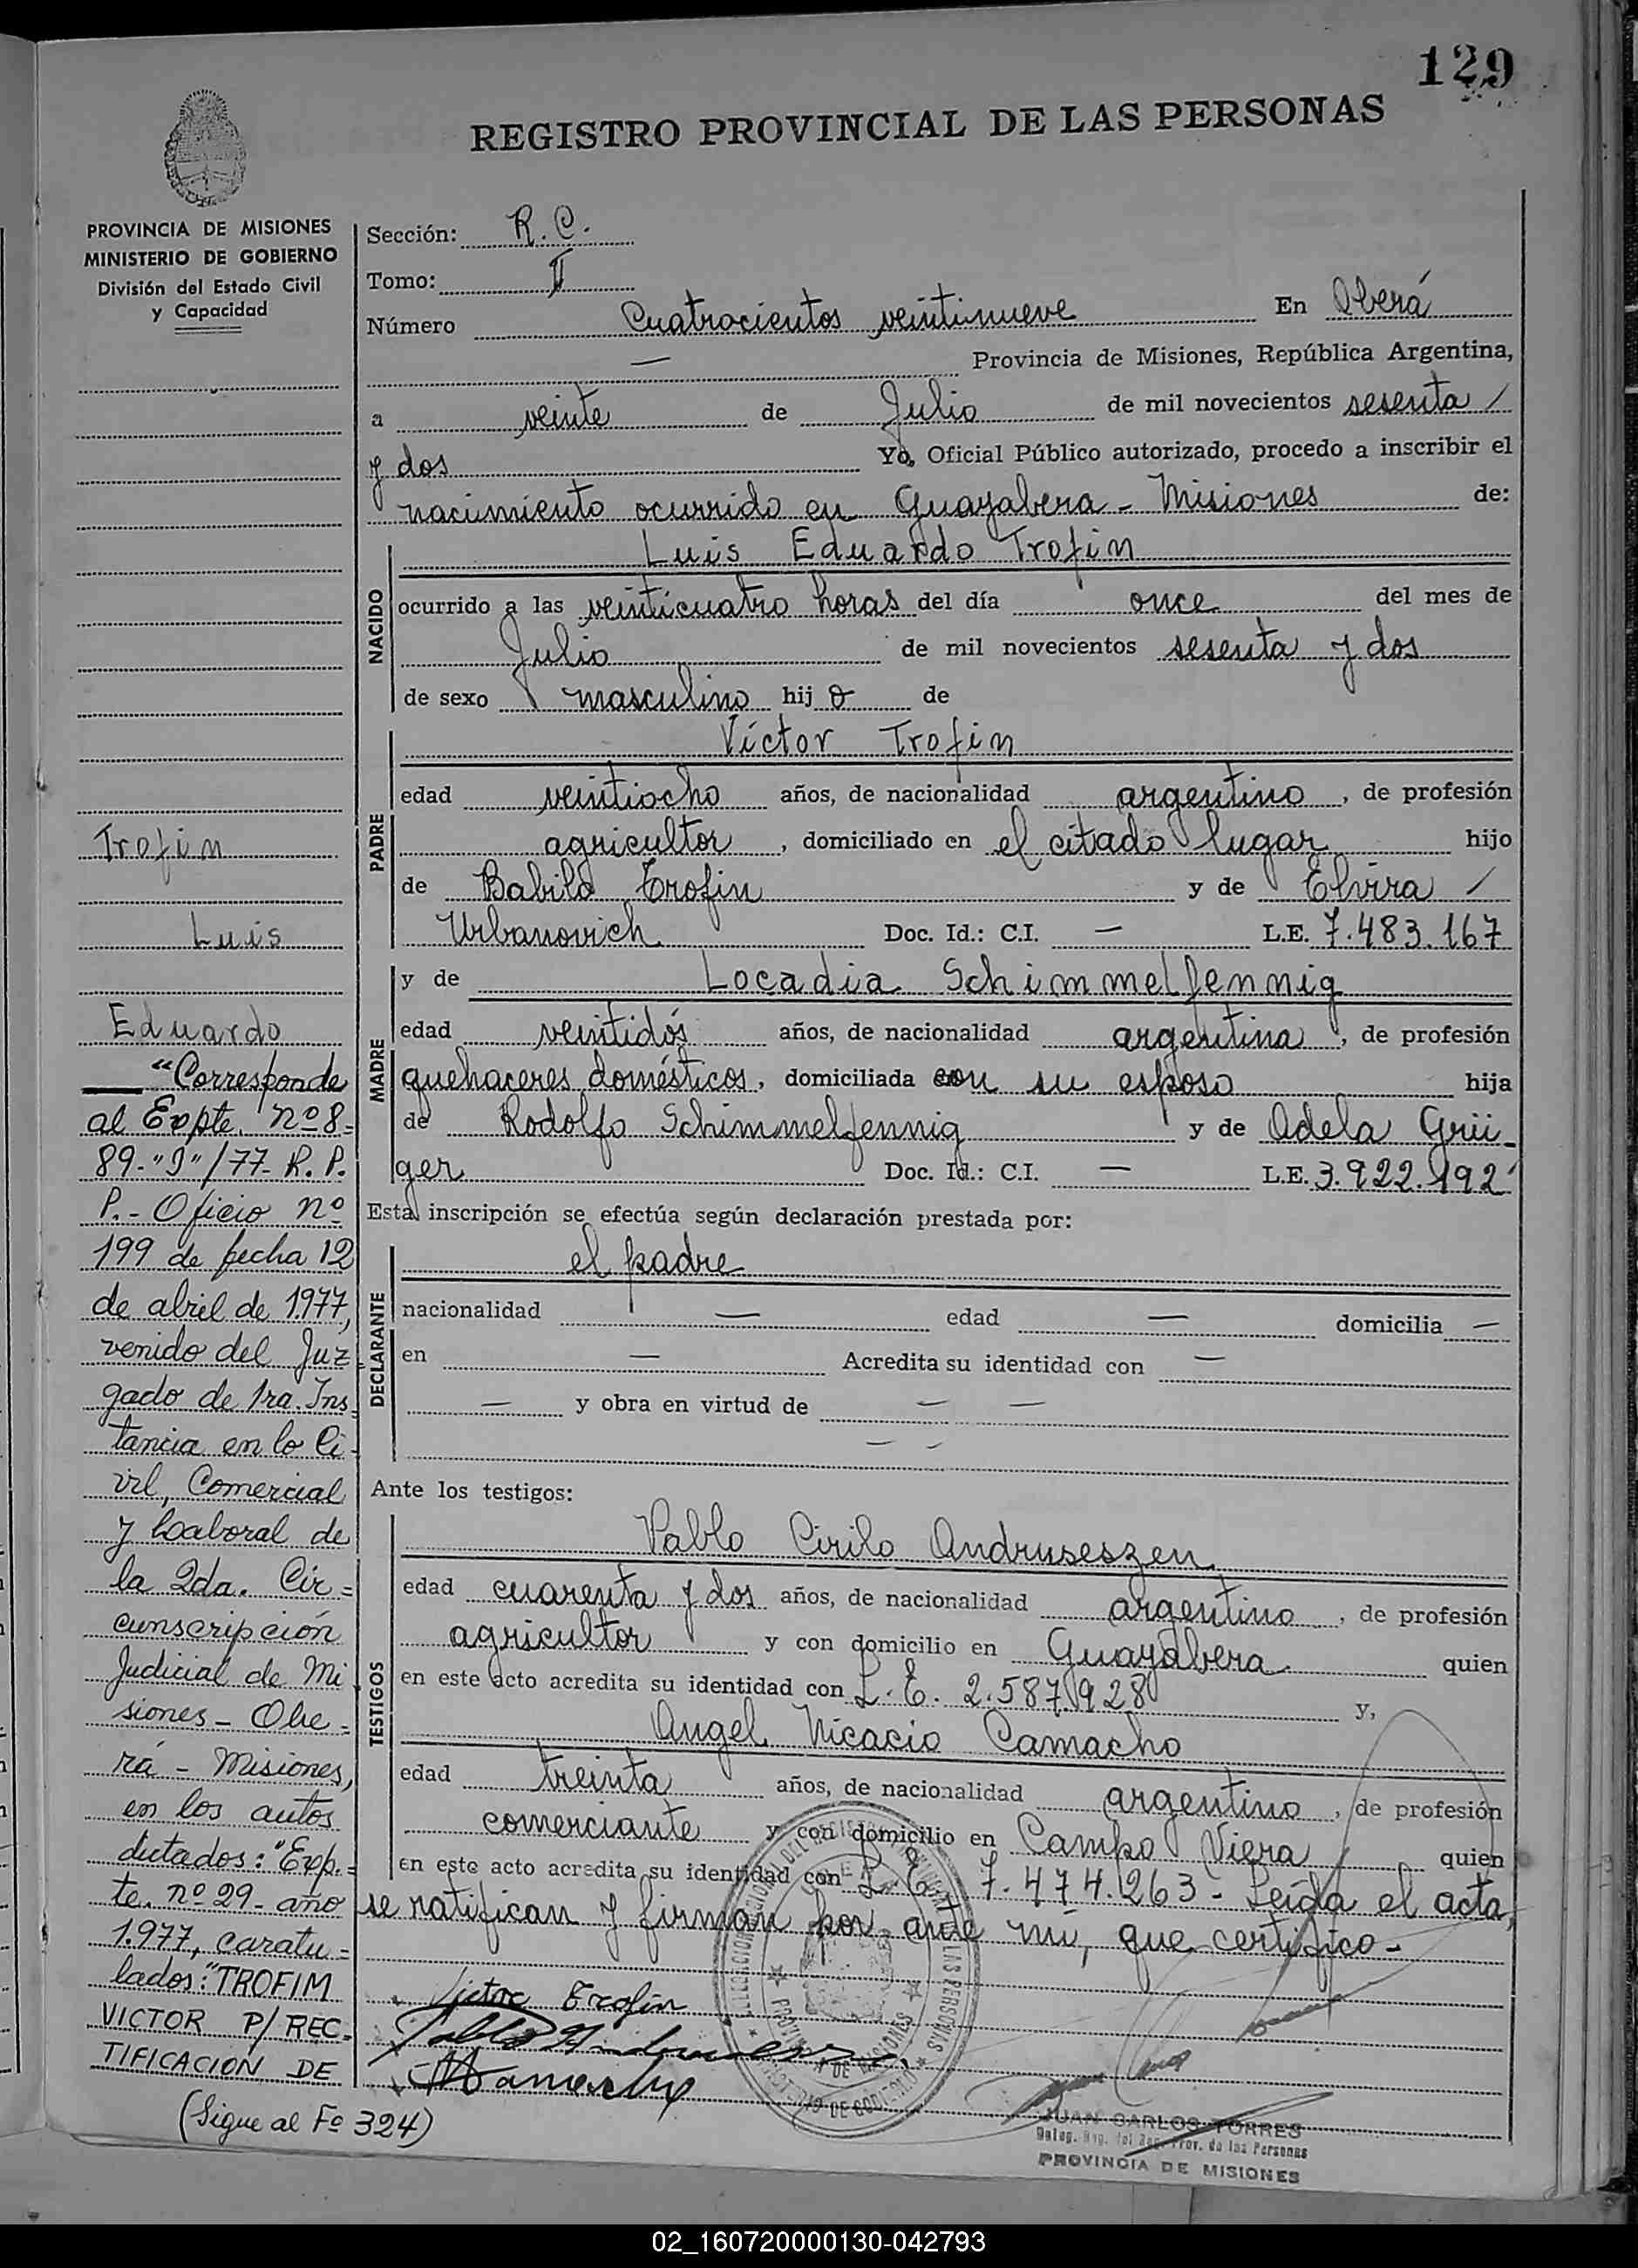 129
REGISTRO PROVINCIAL DE LAS PERSONAS
PROVINCIA DE MISIONES
MINISTERIO DE GOBIERNO
División del Estado Civil
y Capacidad
Trofin
Luis
Eduardo
"Corresponde
al Expte. Nº 8-
89-"J"/77- R. P.
P.- Oficio Nº
199 de fecha 12
de abril de 1.977,
venido del Juz-
gado de 1ra. Ins-
tancia en lo Ci-
vil, Comercial
y Laboral de
la 2da. Cir=
cunscripción
Judicial de Mi
siones - Obe=
rá - Misiones,
en los autos
dictados: "Exp.=
te. nº 29- año
1.977, caratu=
lados: "TROFIM
VICTOR P/ REC-
TIFICACION DE
(Sigue al Fº 324)
Sección: R. C.
Tomo: II
Número Cuatrocientos veintinueve En Oberá
— Provincia de Misiones, República Argentina,
a veinte de Julio de mil novecientos sesenta /
y dos Yo, Oficial Público autorizado, procedo a inscribir el
nacimiento ocurrido en Guayabera - Misiones de:
NACIDO
Luis Eduardo Trofin
ocurrido a las veinticuatro horas del día once del mes de
Julio de mil novecientos sesenta y dos
de sexo masculino hijo de
PADRE
Víctor Trofin
edad veintiocho años, de nacionalidad argentino, de profesión
agricultor, domiciliado en el citado lugar hijo
de Babilo Trofin y de Elvira /
Urbanovich Doc. Id.: C.I. — L.E. 7.483.167
MADRE
y de Locadia Schimmelfennig
edad veintidós años, de nacionalidad argentina, de profesión
quehaceres domésticos, domiciliada con su esposo hija
de Rodolfo Schimmelfennig y de Adela Grü-
ger Doc. Id.: C.I. — L.E. 3.922.192
Esta inscripción se efectúa según declaración prestada por:
DECLARANTE
el padre
nacionalidad — edad — domicilia —
en — Acredita su identidad con —
— y obra en virtud de — —
— -
Ante los testigos:
TESTIGOS
Pablo Cirilo Andruseszen
edad cuarenta y dos años, de nacionalidad argentino, de profesión
agricultor y con domicilio en Guayabera quien
en este acto acredita su identidad con L. E. 2.587.928 y,
Angel Nicacio Camacho
edad treinta años, de nacionalidad argentino, de profesión
comerciante y con domicilio en Campo Viera quien
en este acto acredita su identidad con L. E. 7.474.263 - Leída el acta,
se ratifican y firman por ante mí, que certifico-
Victor Trofin
JUAN CARLOS TORRES
Deleg. Reg. del Reg. Prov. de las Personas
PROVINCIA DE MISIONES
02_160720000130-042793